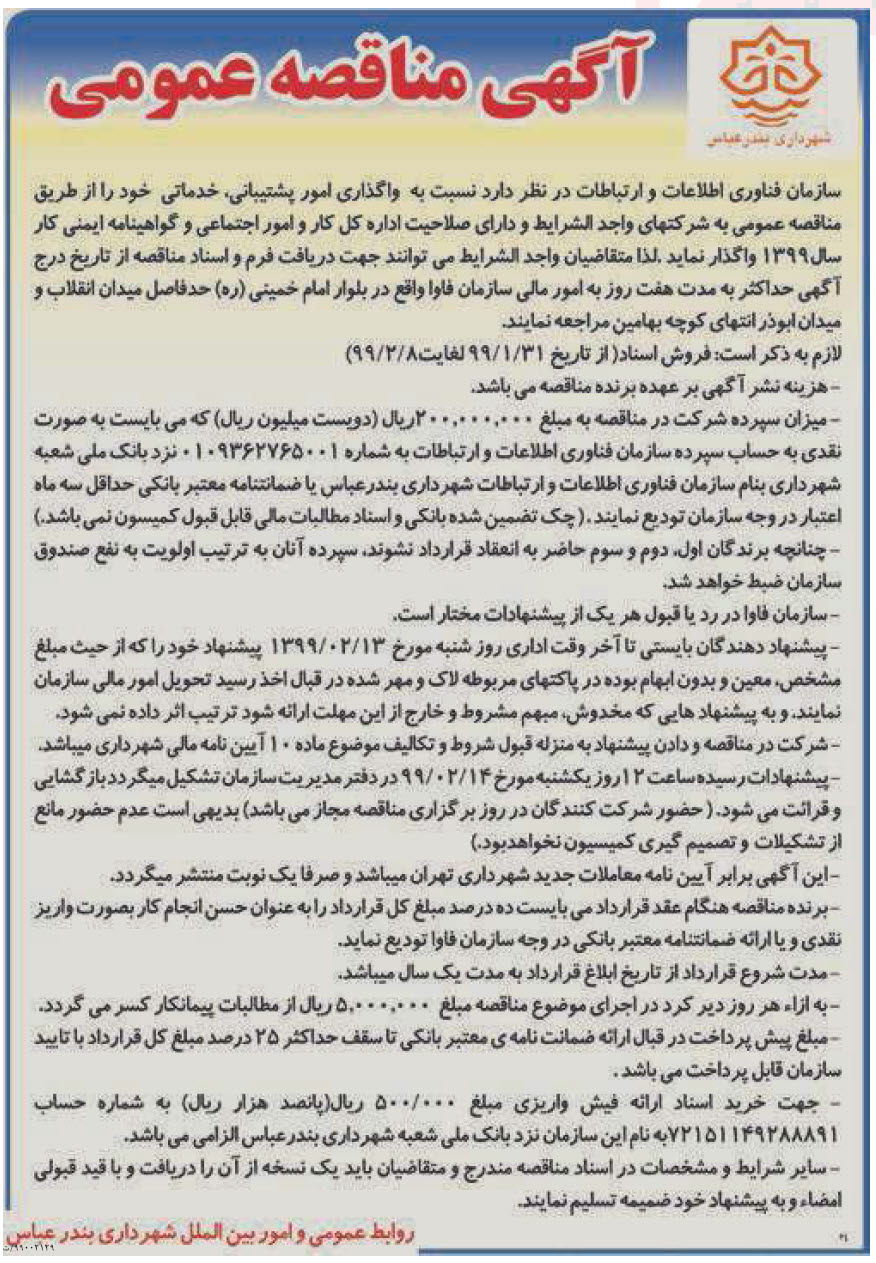 آگهی مناقصه عمومی
شهرداری بندرعباس
سازمان فناوری اطلاعات و ارتباطات در نظر دارد نسبت به واگذاری امور پشتیبانی، خدماتی خود را از طریق
مناقصه عمومی به شرکتهای واجد الشرایط و دارای صلاحیت اداره کل کار و امور اجتماعی و گواهینامه ایمنی کار
سال ۱۳۹۹ واگذار نماید .لذا متقاضیان واجد الشرایط می توانند جهت دریافت فرم و اسناد مناقصه از تاریخ درج
آگهی حداکثر به مدت هفت روز به امور مالی سازمان فاوا واقع در بلوار امام خمینی (ره) حدفاصل میدان انقلاب و
میدان ابوذر انتهای کوچه بهامین مراجعه نمایند.
لازم به ذکر است: فروش اسناد( از تاریخ ۹۹/۱/۳۱ لغایت۹۹/۲/۸)
-هزینه نشر آگهی بر عهده برنده مناقصه می باشد.
-میزان سپرده شرکت در مناقصه به مبلغ ۲۰۰,۰۰۰,۰۰۰ریال (دویست میلیون ریال) که می بایست به صورت
نقدی به حساب سپرده سازمان فناوری اطلاعات و ارتباطات به شماره ۰۱۰۹۳۶۲۷۶۵۰۰۱ نزد بانک ملی شعبه
شهرداری بنام سازمان فناوری اطلاعات و ارتباطات شهرداری بندرعباس یا ضمانتنامه معتبر بانکی حداقل سه ماه
اعتبار در وجه سازمان تودیع نمایند .( چک تضمین شده بانکی و اسناد مطالبات مالی قابل قبول کمیسون نمی باشد.)
-چنانچه برندگان اول، دوم و سوم حاضر به انعقاد قرارداد نشوند، سپرده آنان به ترتیب اولویت به نفع صندوق
سازمان ضبط خواهد شد.
-سازمان فاوا در رد یا قبول هر یک از پیشنهادات مختار است.
-پیشنهاد دهندگان بایستی تا آخر وقت اداری روز شنبه مورخ ۱۳۹۹/۰۲/۱۳ پیشنهاد خود را که از حیث مبلغ
مشخص، معین و بدون ابهام بوده در پاکتهای مربوطه لاک و مهر شده در قبال اخذ رسید تحویل امور مالی سازمان
نمایند. و به پیشنهاد هایی که مخدوش، مبهم مشروط و خارج از این مهلت ارائه شود ترتیب اثر داده نمی شود.
-شرکت در مناقصه و دادن پیشنهاد به منزله قبول شروط و تکالیف موضوع ماده ۱۰ آیین نامه مالی شهرداری میباشد.
-پیشنهادات رسیده ساعت ۱۲ روز یکشنبه مورخ ۹۹/۰۲/۱۴ در دفتر مدیریت سازمان تشکیل میگردد بازگشایی
و قرائت می شود. ( حضور شرکت کنندگان در روز برگزاری مناقصه مجاز می باشد) بدیهی است عدم حضور مانع
از تشکیلات و تصمیم گیری کمیسیون نخواهدبود.)
-این آگهی برابر آیین نامه معاملات جدید شهرداری تهران میباشد و صرفا یک نوبت منتشر میگردد.
-برنده مناقصه هنگام عقد قرارداد می بایست ده درصد مبلغ کل قرارداد را به عنوان حسن انجام کار بصورت واریز
نقدی و یا ارائه ضمانتنامه معتبر بانکی در وجه سازمان فاوا تودیع نماید.
-مدت شروع قرارداد از تاریخ ابلاغ قرارداد به مدت یک سال میباشد.
-به ازاء هر روز دیر کرد در اجرای موضوع مناقصه مبلغ ۵,۰۰۰,۰۰۰ ریال از مطالبات پیمانکار کسر می گردد.
-مبلغ پیش پرداخت در قبال ارائه ضمانت نامه ی معتبر بانکی تا سقف حداکثر ۲۵ درصد مبلغ کل قرارداد با تایید
سازمان قابل پرداخت می باشد .
- جهت خرید اسناد ارائه فیش واریزی مبلغ ۵۰۰/۰۰۰ ریال(پانصد هزار ریال) به شماره حساب
۷۲۱۵۱۱۴۹۲۸۸۸۹۱به نام این سازمان نزد بانک ملی شعبه شهرداری بندرعباس الزامی می باشد.
-سایر شرایط و مشخصات در اسناد مناقصه مندرج و متقاضیان باید یک نسخه از آن را دریافت و با قید قبولی
امضاء و به پیشنهاد خود ضمیمه تسلیم نمایند.
روابط عمومی و امور بین الملل شهرداری بندر عباس